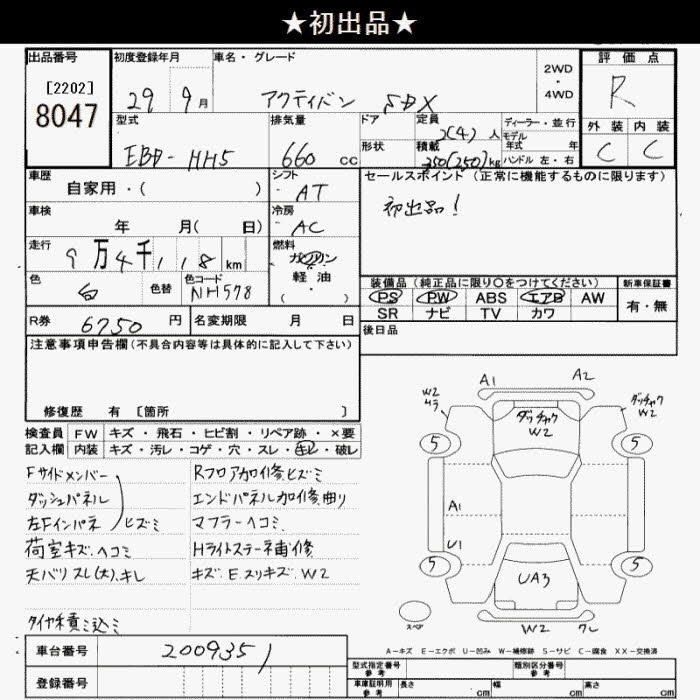 ★初出品★
出品番号
[2202]
8047
初度登録年月
29 9月
車名・グレード
アクティバン SDX
2WD
4WD
評価点
R
型式
EBD-HH5
排気量
660 cc
ドア
形状
定員
2(4)人
積載
350(250)kg
ディーラー・並行
モデル
年式 年
ハンドル 左・右
外装 内装
C C
車歴
自家用・( )
シフト
AT
セールスポイント(正常に機能するものに限ります)
初出品!
車検
年 月( 日)
冷房
AC
走行
9万4千118km
燃料
ガソリン
軽油
( ・ )
色
白
色替
色コード
NH578
装備品(純正品に限り○をつけてください)
PS PW ABS エアB AW
SR ナビ TV カワ
新車保証書
有・無
R券
6750円
名変期限 月 日
後日品
注意事項申告欄(不具合内容等は具体的に記入して下さい)
修復歴 有 [箇所 ]
検査員
記入欄
FW キズ・飛石・ヒビ割・リペア跡・×要
内装 キズ・汚レ・コゲ・穴・スレ・キレ・破レ
Fサイドメンバー
ダッシュパネル
左Fインパネ ヒズミ
荷室キズ、ヘコミ
天バリスレ(大)、キレ
タイヤ積ミ込ミ
Rフロア加修、ヒズミ
エンドパネル加修、曲リ
マフラーヘコミ
Hライトステー補修
キズ、E、スリキズ、W2
A1 A2
W2
ダッチャク
W2
ダッチャク
W2
5 5
A1
U1
5 5
UA3
スペア
W2 ワレ
A-キズ E-エクボ U-凹み W-補修跡 S-サビ C-腐食 XX-交換済
車台番号
2009351
登録番号
型式指定番号
参考
類別区分番号
参考
車庫証明用
参考
長さ cm 幅 cm 高さ cm